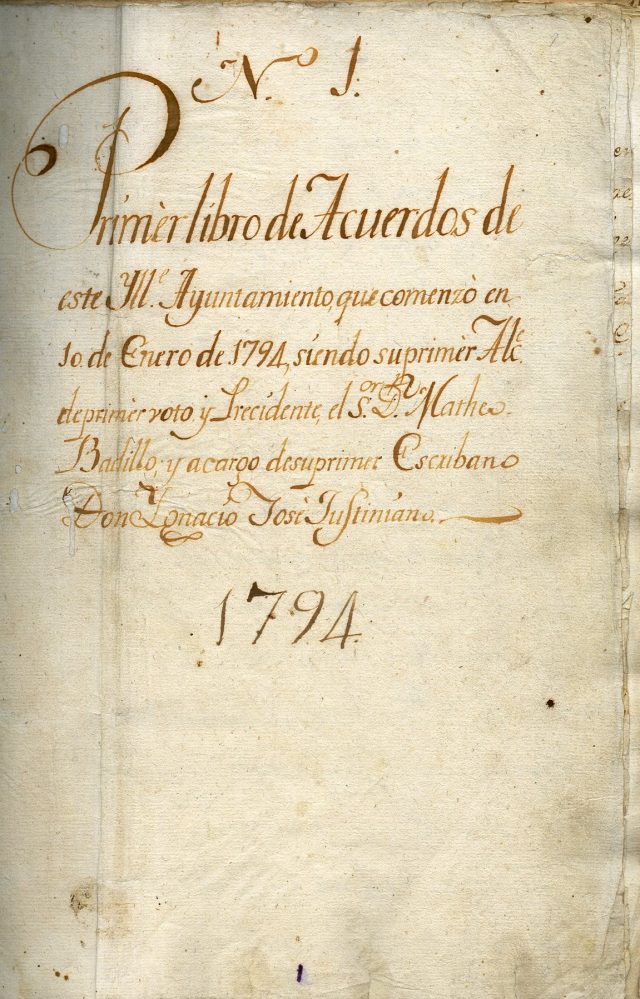 N.º 1.
Primèr libro de Acuerdos de
este Yll.e Ayuntamiento, que comenzò en
10. de Enero de 1794, siendo su primèr Alc.e
de primèr voto y Precidente, el S.or D.n Matheo
Badillo, y a cargo de su primer Escribano
Don Ygnacio José Justiniano.
1794.
1